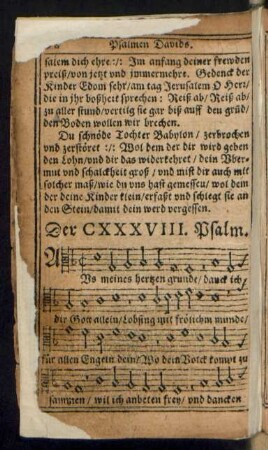 Psalmen Davids.
salem dich ehre :/: Im anfang deiner frewden
preiß/ von jetzt und jmmermehre. Gedenck der
Kinder Edom sehr/ am tag Jerusalem O Herr/
die in jhr boßheit sprechen : Reiß ab/ Reiß ab/
zu aller stund/ vertilg sie gar biß auff den grüd/
den Boden wollen wir brechen.
Du schnöde Tochter Babylon / zerbrochen
und zerstöret :/: Wol dem der dir wird geben
den Lohn/ und dir das widerkehret / dein Vber-
mut und schalckheit groß / und mist dir auch mit
solcher maß/ wie du uns hast gemessen/ wol dem
der deine Kinder klein/ erfaßt und schlegt sie an
den Stein/ damit dein werd vergessen.
Der CXXXVIII. Psalm.
AVs meines hertzen grunde/ danck ich/
dir Gott allein/ Lobsing mit frölichm munde/
für allen Engeln dein/ Wo dein Volck kompt zu
sammen / wil ich anbeten frey/ und dancken